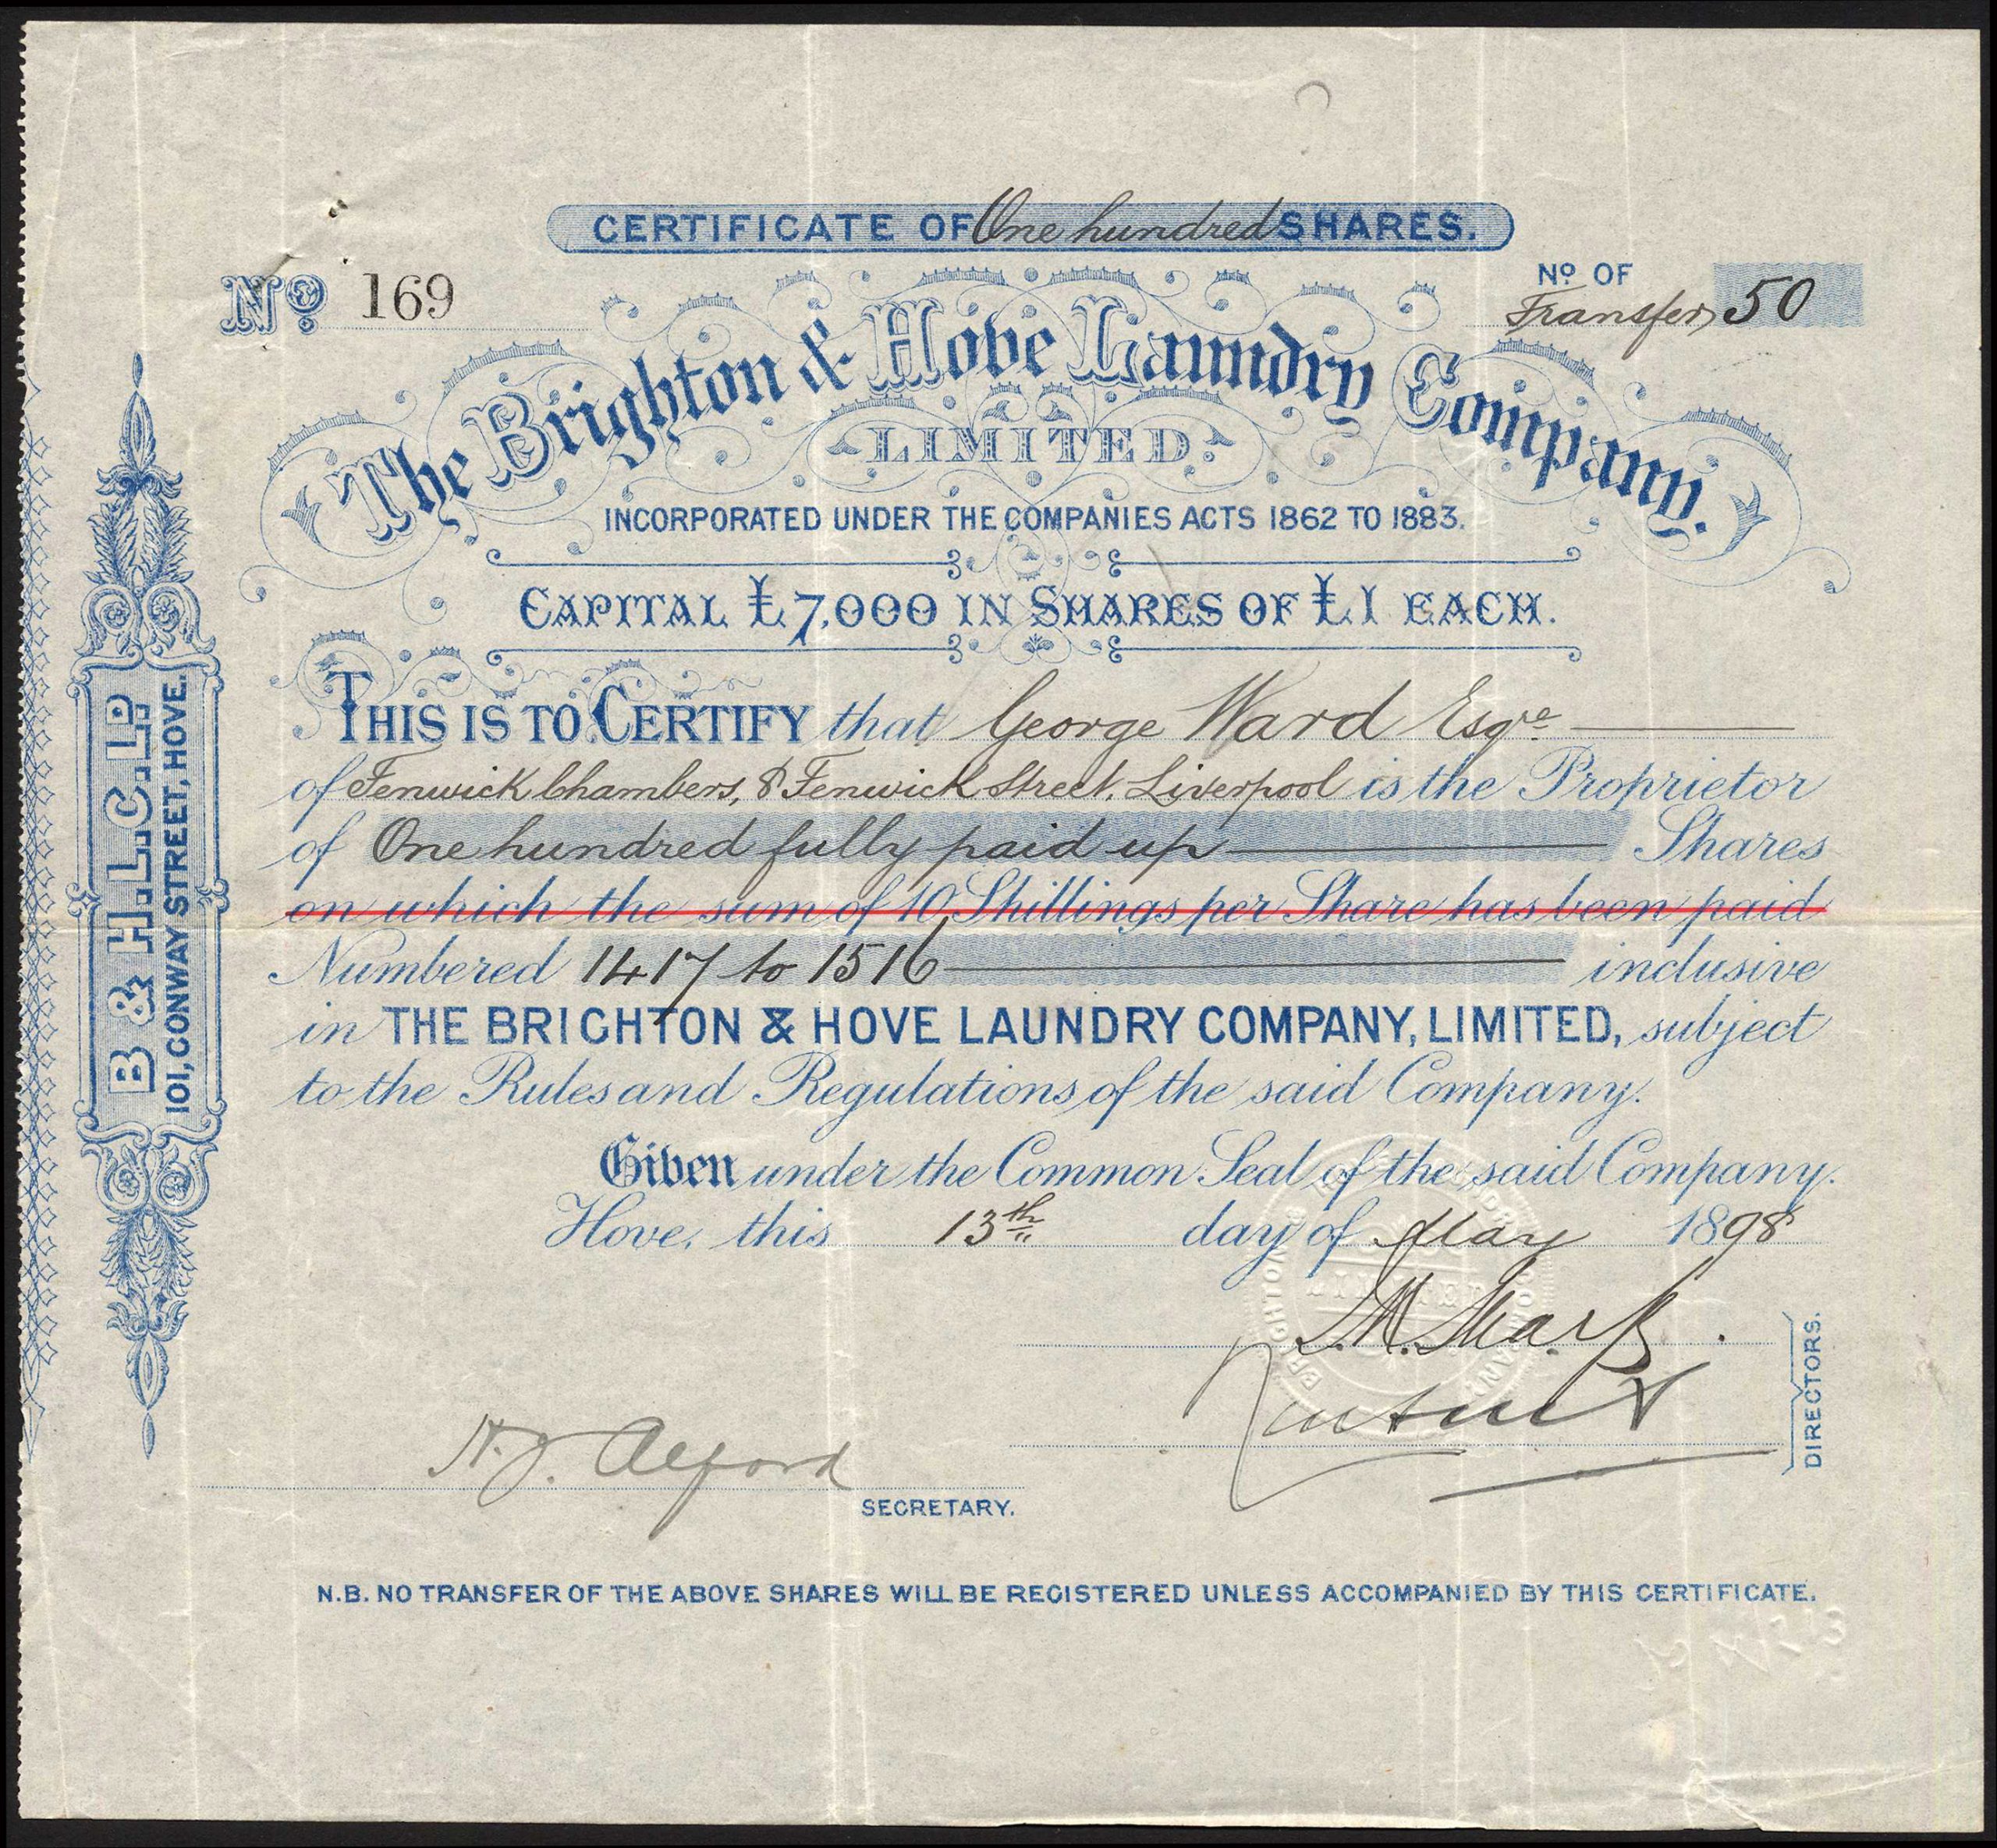 CERTIFICATE OF One hundred SHARES.
No. 169
No. OF
Transfer 50
The Brighton & Hove Laundry Company.
LIMITED.
INCORPORATED UNDER THE COMPANIES ACTS 1862 TO 1883.
CAPITAL £7,000 IN SHARES OF £1 EACH.
THIS IS TO CERTIFY that George Ward Esqre
of Fenwick Chambers, 8 Fenwick Street, Liverpool is the Proprietor
of One hundred fully paid up Shares
on which the sum of 10 Shillings per Share has been paid
Numbered 1417 to 1516 inclusive
in THE BRIGHTON & HOVE LAUNDRY COMPANY, LIMITED, subject
to the Rules and Regulations of the said Company.
Given under the Common Seal of the said Company.
Hove, this 13th day of May 1898
DIRECTORS.
H. J. Alford
SECRETARY.
N.B. NO TRANSFER OF THE ABOVE SHARES WILL BE REGISTERED UNLESS ACCOMPANIED BY THIS CERTIFICATE.
B & H.L.C. LD.
101, CONWAY STREET, HOVE.